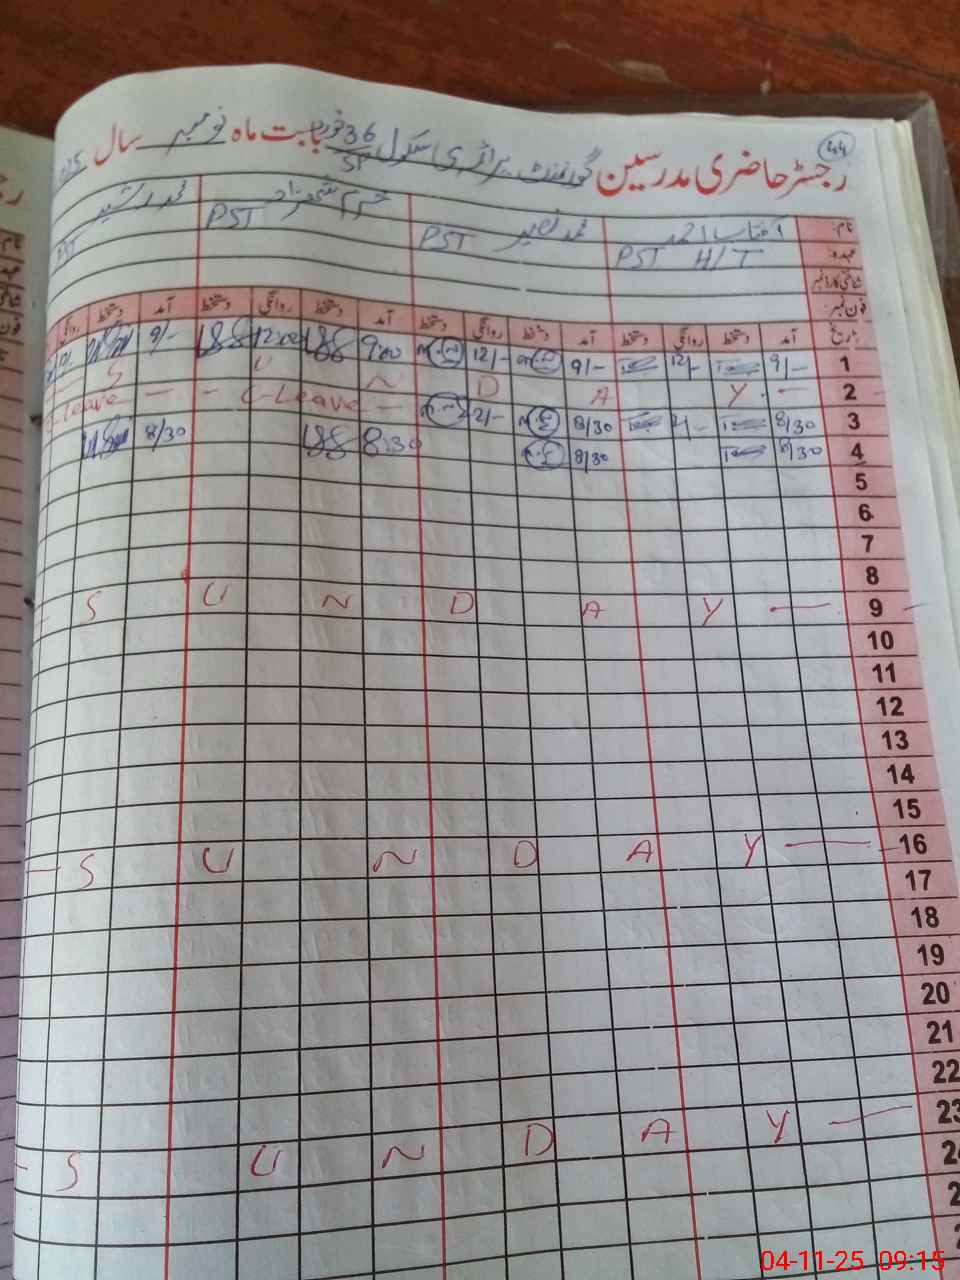 44
رجسٹر حاضری مدرسین گورنمنٹ پرائمری سکول 36/SP بابت ماہ نومبر سال
نام: آفتاب احمد محمد نصیر خرم شہزاد محمد رشید
عہدہ: PST H/T PST PST PST
شناختی کارڈ نمبر
فون نمبر:
تاریخ آمد دستخط روانگی دستخط آمد دستخط روانگی دستخط آمد دستخط روانگی دستخط آمد دستخط روانگی
1 9/- 12/- 9/- 12/- 9:00 12:00 9/- 12/-
2 S U N D A Y
3 8/30 2/- 8/30 2/- C-Leave C-Leave
4 8/30 8/30 8:30 8/30
5
6
7
8
9 S U N D A Y
10
11
12
13
14
15
16 S U N D A Y
17
18
19
20
21
22
23 S U N D A Y
04-11-25 09:15